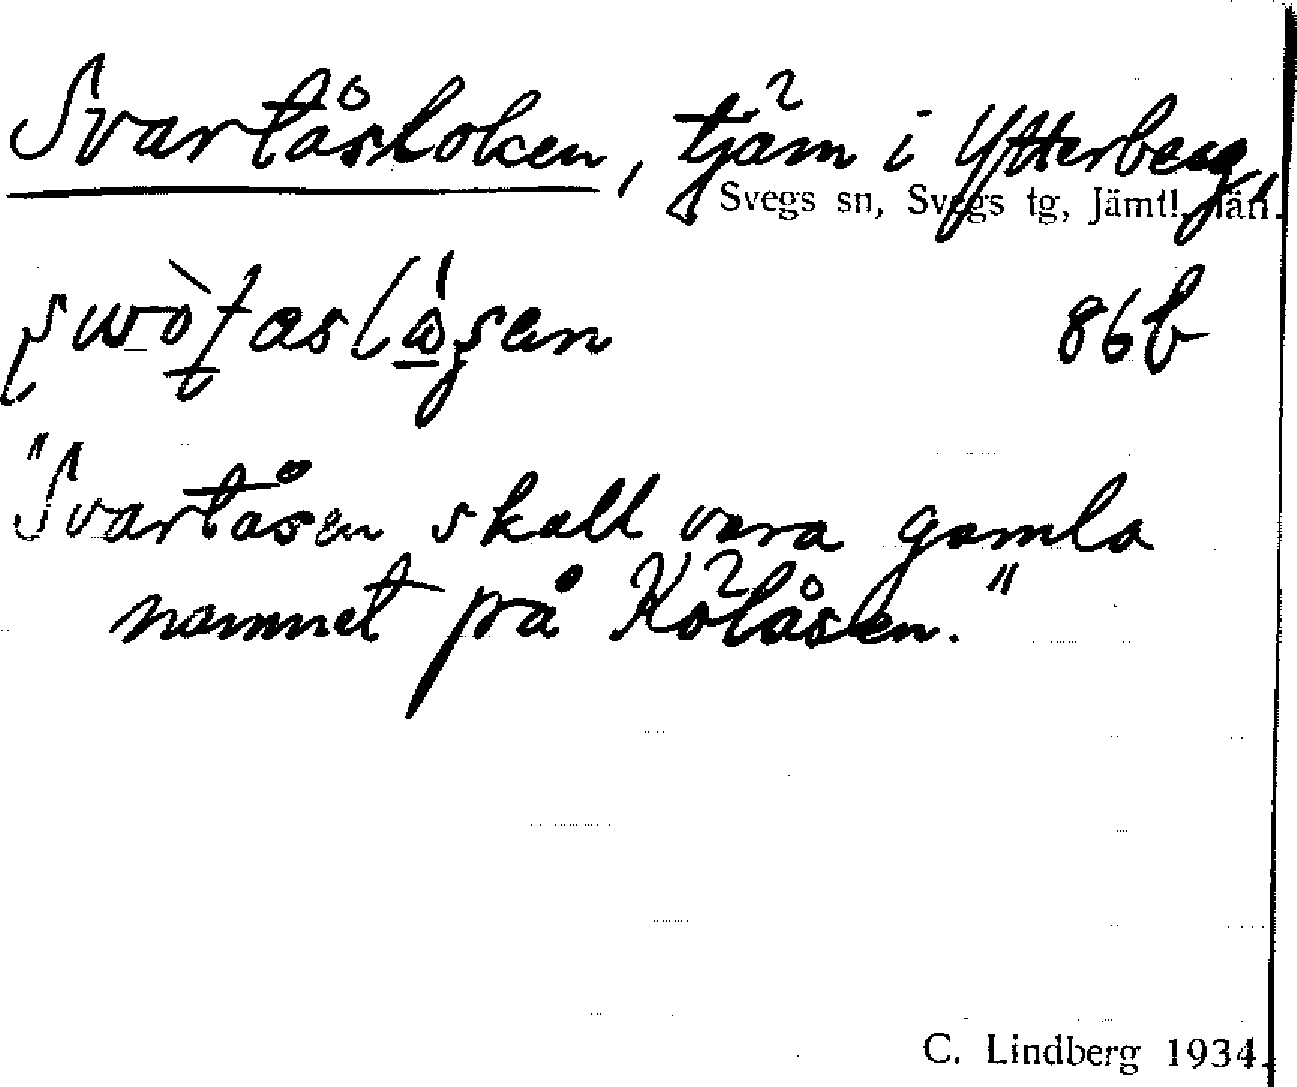 Svartåsloken, tjäm i Ytterberg,
Svegs sn, Svegs tg, Jämtl. län.
86b
"Svartåsen skall vara gamla
namnet på Kölåsen."
C. Lindberg 1934.